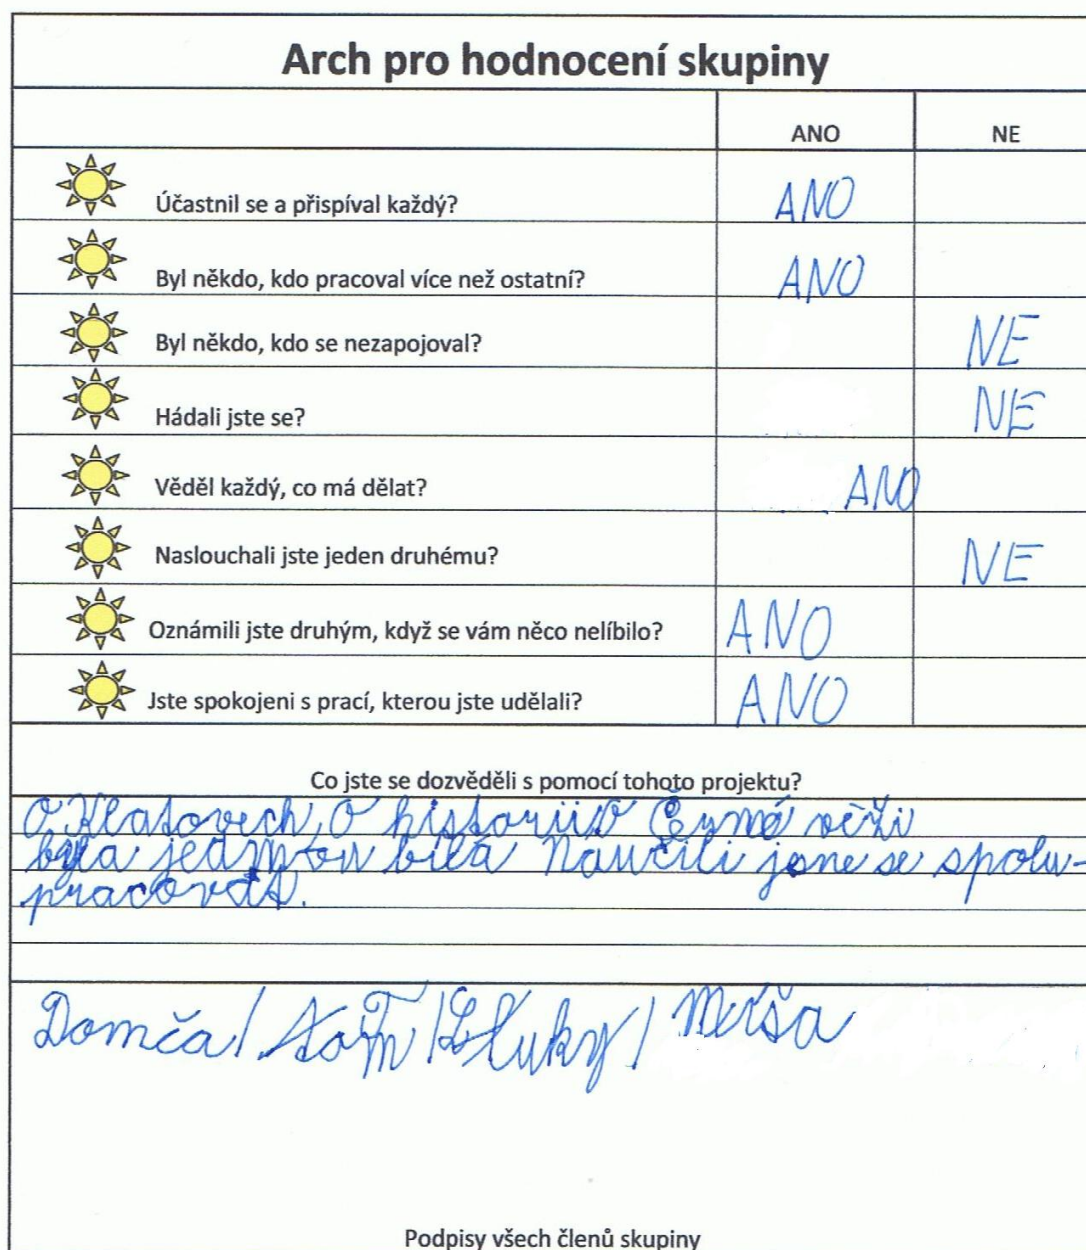 Arch pro hodnocení skupiny
ANO NE
Účastnil se a přispíval každý? ANO
Byl někdo, kdo pracoval více než ostatní? ANO
Byl někdo, kdo se nezapojoval? NE
Hádali jste se? NE
Věděl každý, co má dělat? ANO
Naslouchali jste jeden druhému? NE
Oznámili jste druhým, když se vám něco nelíbilo? ANO
Jste spokojeni s prací, kterou jste udělali? ANO
Co jste se dozvěděli s pomocí tohoto projektu?
O Klatovech, O historii Černé věži
byla bílá Naučili jsne se spolu-
pracovat.
Domča / / Luky / Míša
Podpisy všech členů skupiny